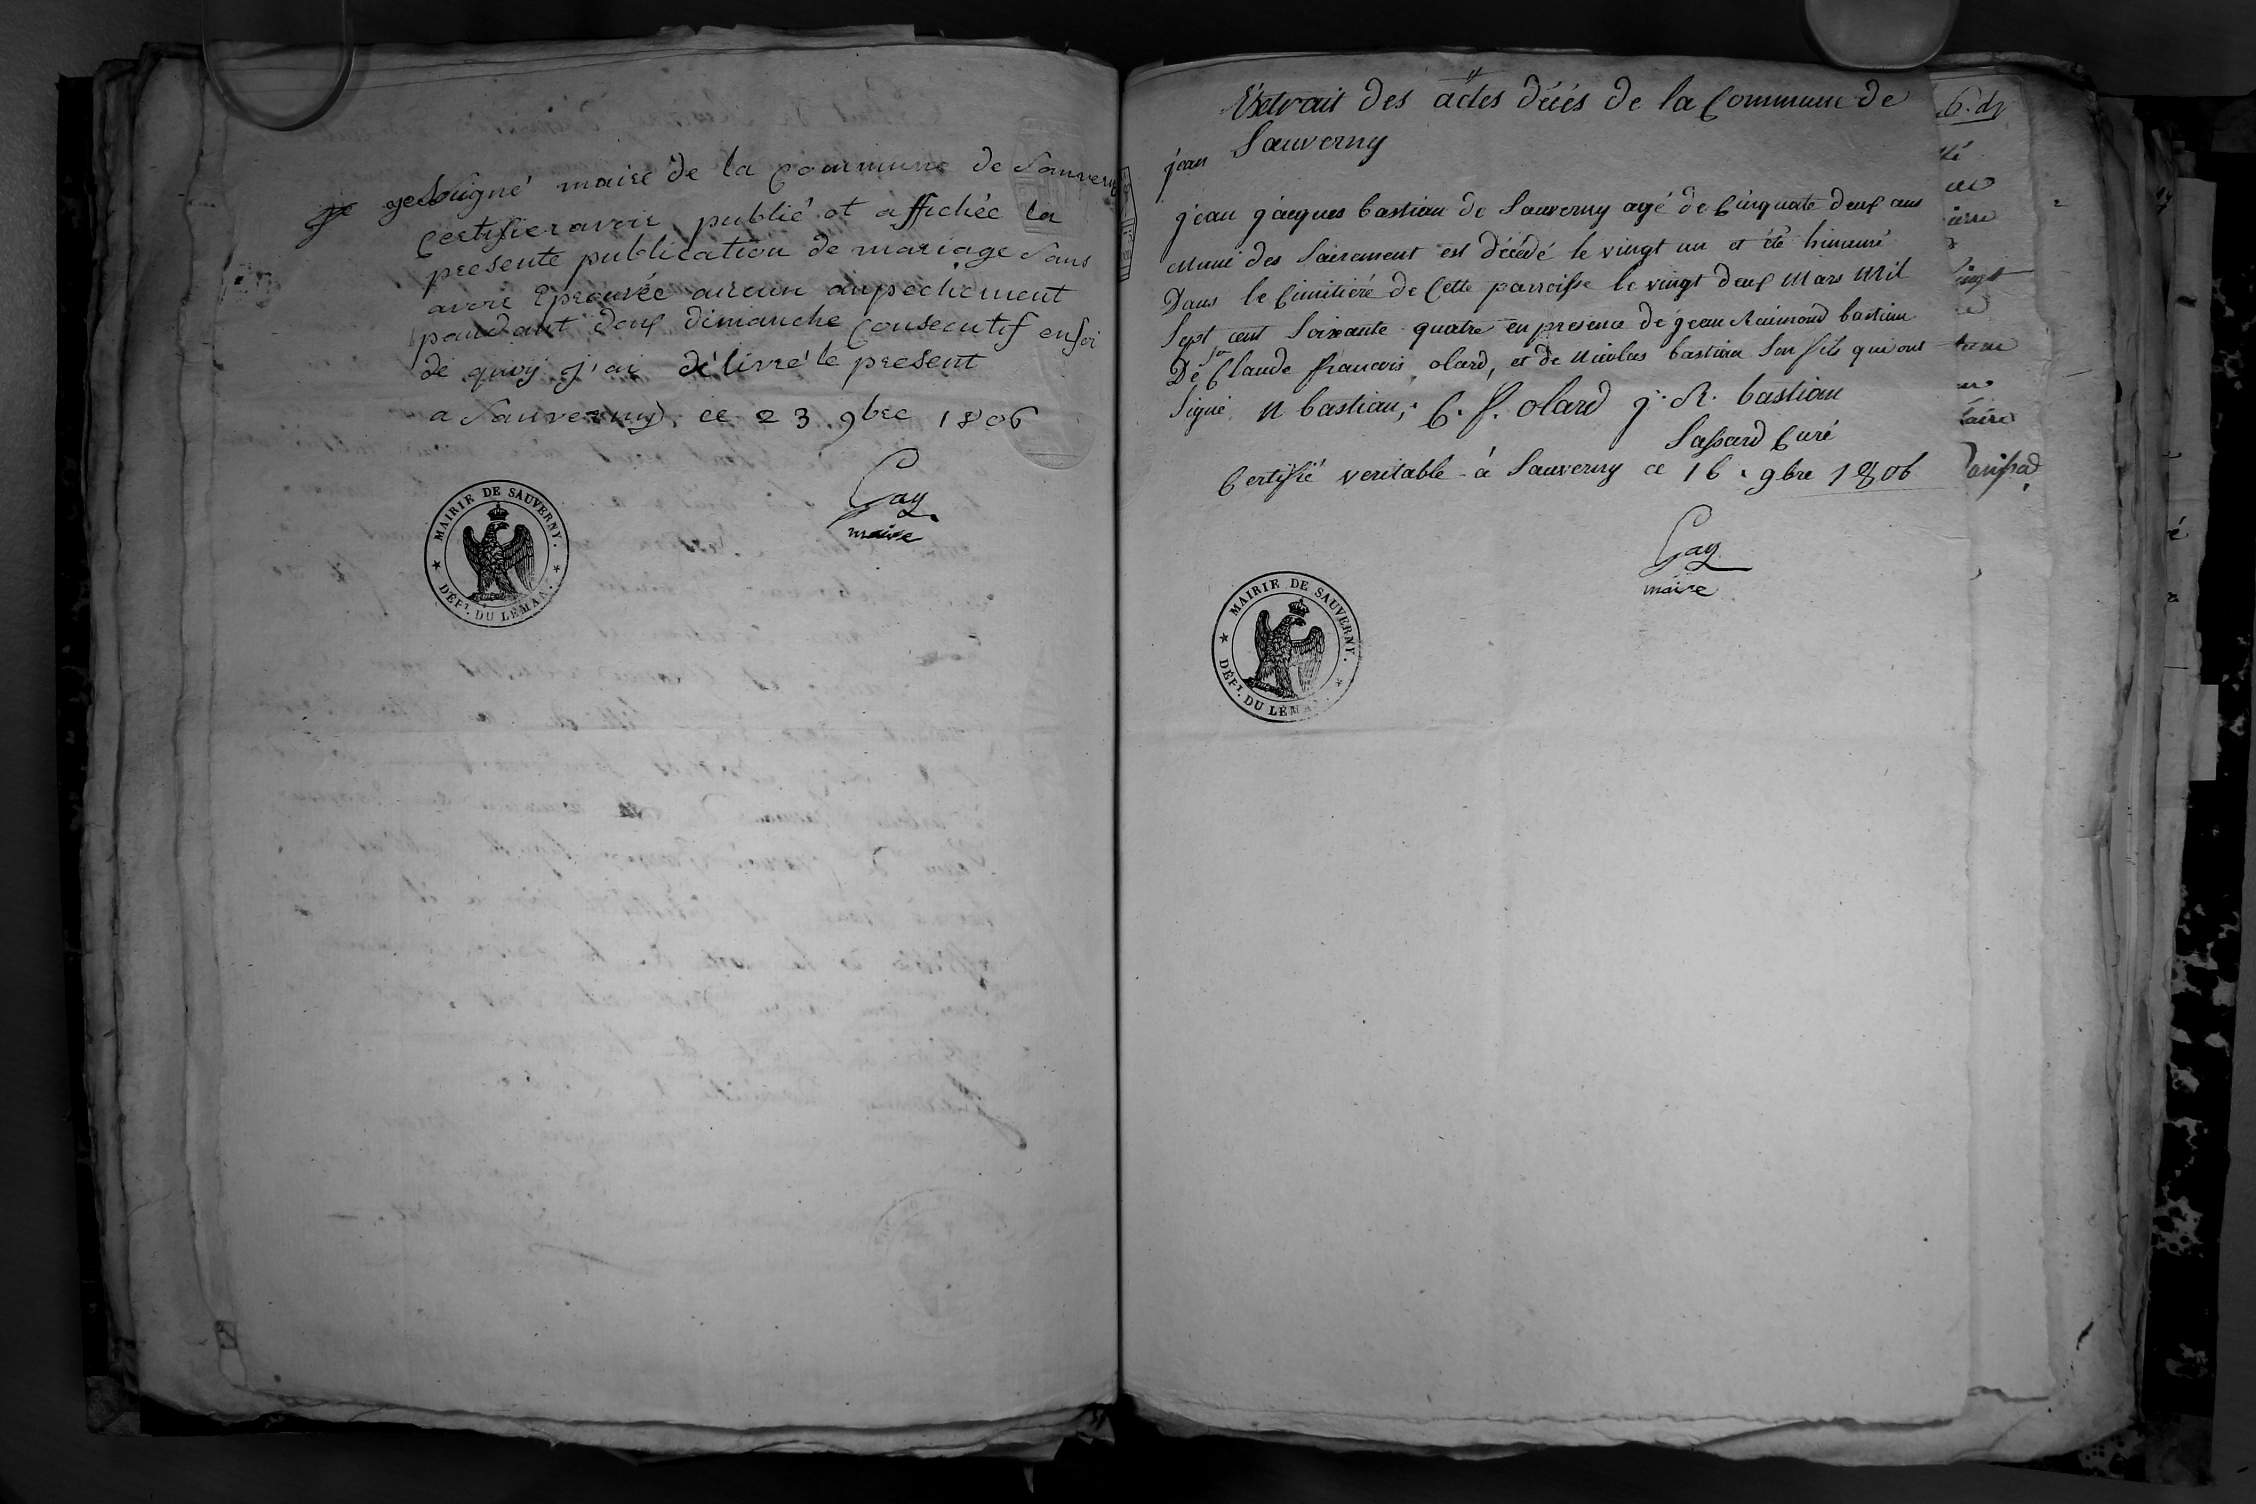 je soigné maire de la commune de Sauverny
Certifier avoir publié et affichée la
presente publication de mariage Sans
avoir Eprouvée aucun anpechement
pandant deux dimanche Consecutif en foi
de quoy j'ai délivré le present
a Sauverny ce 23 9bre 1806
Gay
maire
MAIRIE DE SAUVERNY.
DÉPT. DU LÉMAN.
Extrait des actes décés de la Commune de
Sauverny
jean
jean jacques bastian de Sauverny agé de Cinquate deux ans
Muni des Sairement est décédé le vingt un et été hinumé
Dans le Cimitiére de Cette parroisse le vingt deux Mars Mil
Sept cent Soixante quatre en presence de jean Raimond bastian
De Sr Claude francois olard, et de Nicolas bastian Son fils qui ont
Signé N bastian, C. f. olard j. R. bastian
Sassard Curé
Certifié veritable à Sauverny ce 16 9bre 1806
Gay
maire
MAIRIE DE SAUVERNY.
DÉPT. DU LÉMAN